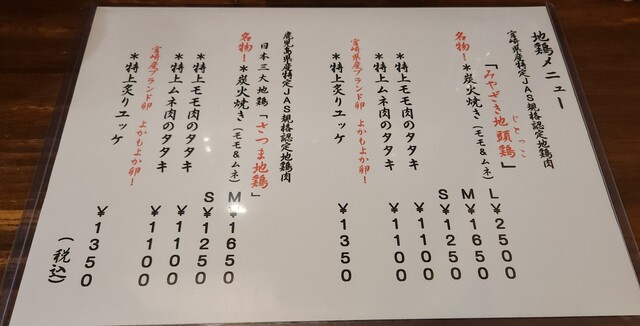 地鶏メニュー
宮崎県産特定JAS規格認定地鶏肉
「みやざき地頭鶏」
じとっこ
名物!*炭火焼き(モモ&ムネ) L ¥2500
M ¥1650
S ¥1250
*特上モモ肉のタタキ ¥1100
*特上ムネ肉のタタキ ¥1100
宮崎県産ブランド卵 よかもよか卵!
*特上炙りユッケ ¥1350
鹿児島県産特定JAS規格認定地鶏肉
日本三大地鶏「さつま地鶏」
名物!*炭火焼き(モモ&ムネ) M ¥1650
S ¥1250
*特上モモ肉のタタキ ¥1100
*特上ムネ肉のタタキ ¥1100
宮崎県産ブランド卵 よかもよか卵!
*特上炙りユッケ ¥1350
(税込)